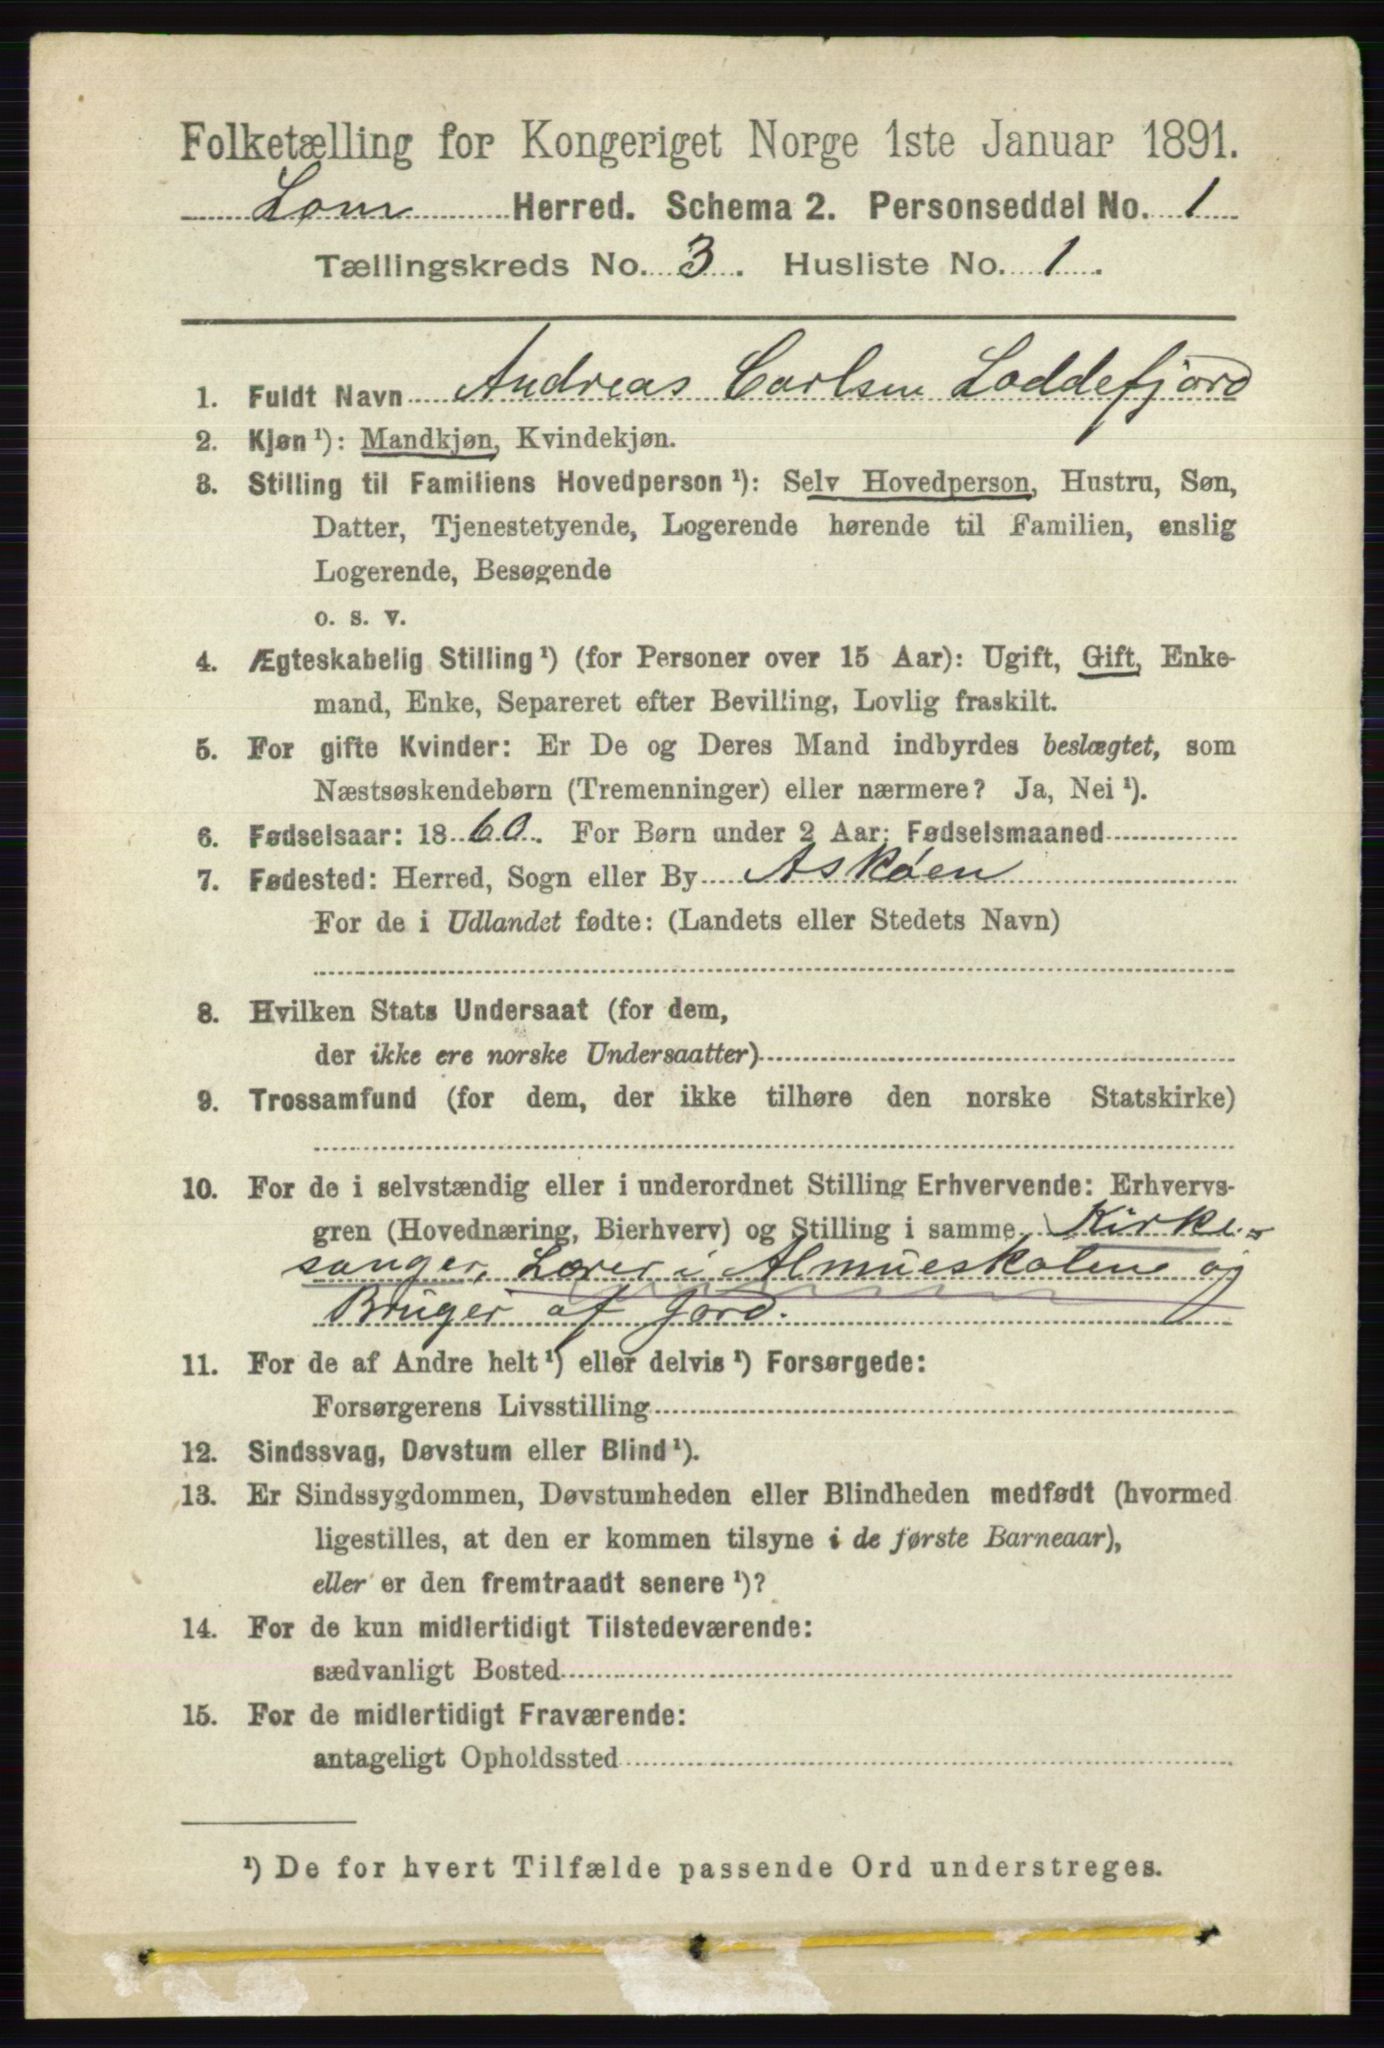 Folketælling for Kongeriget Norge 1ste Januar 1891.
Lom Herred. Schema 2. Personseddel No. 1
Tællingskreds No. 3. Husliste No. 1.
1. Fuldt Navn Andreas Carlsen Loddefjord
2. Kjøn¹): Mandkjøn, Kvindekjøn.
3. Stilling til Familiens Hovedperson¹): Selv Hovedperson, Hustru, Søn,
Datter, Tjenestetyende, Logerende hørende til Familien, enslig
Logerende, Besøgende
o. s. v.
4. Ægteskabelig Stilling¹) (for Personer over 15 Aar): Ugift, Gift, Enke-
mand, Enke, Separeret efter Bevilling, Lovlig fraskilt.
5. For gifte Kvinder: Er De og Deres Mand indbyrdes beslægtet, som
Næstsøskendebørn (Tremenninger) eller nærmere? Ja, Nei¹).
6. Fødselsaar: 1860. For Børn under 2 Aar: Fødselsmaaned
7. Fødested: Herred, Sogn eller By Askøen
For de i Udlandet fødte: (Landets eller Stedets Navn)
8. Hvilken Stats Undersaat (for dem,
der ikke ere norske Undersaatter)
9. Trossamfund (for dem, der ikke tilhøre den norske Statskirke)
10. For de i selvstændig eller i underordnet Stilling Erhvervende: Erhvervs-
gren (Hovednæring, Bierhverv) og Stilling i samme Kirke-
sanger, Lærer i Almueskolen og
Brüger af Jord.
11. For de af Andre helt¹) eller delvis¹) Forsørgede:
Forsørgerens Livsstilling
12. Sindssvag, Døvstum eller Blind¹).
13. Er Sindssygdommen, Døvstumheden eller Blindheden medfødt (hvormed
ligestilles, at den er kommen tilsyne i de første Barneaar),
eller er den fremtraadt senere¹)?
14. For de kun midlertidigt Tilstedeværende:
sædvanligt Bosted
15. For de midlertidigt Fraværende:
antageligt Opholdssted
¹) De for hvert Tilfælde passende Ord understreges.